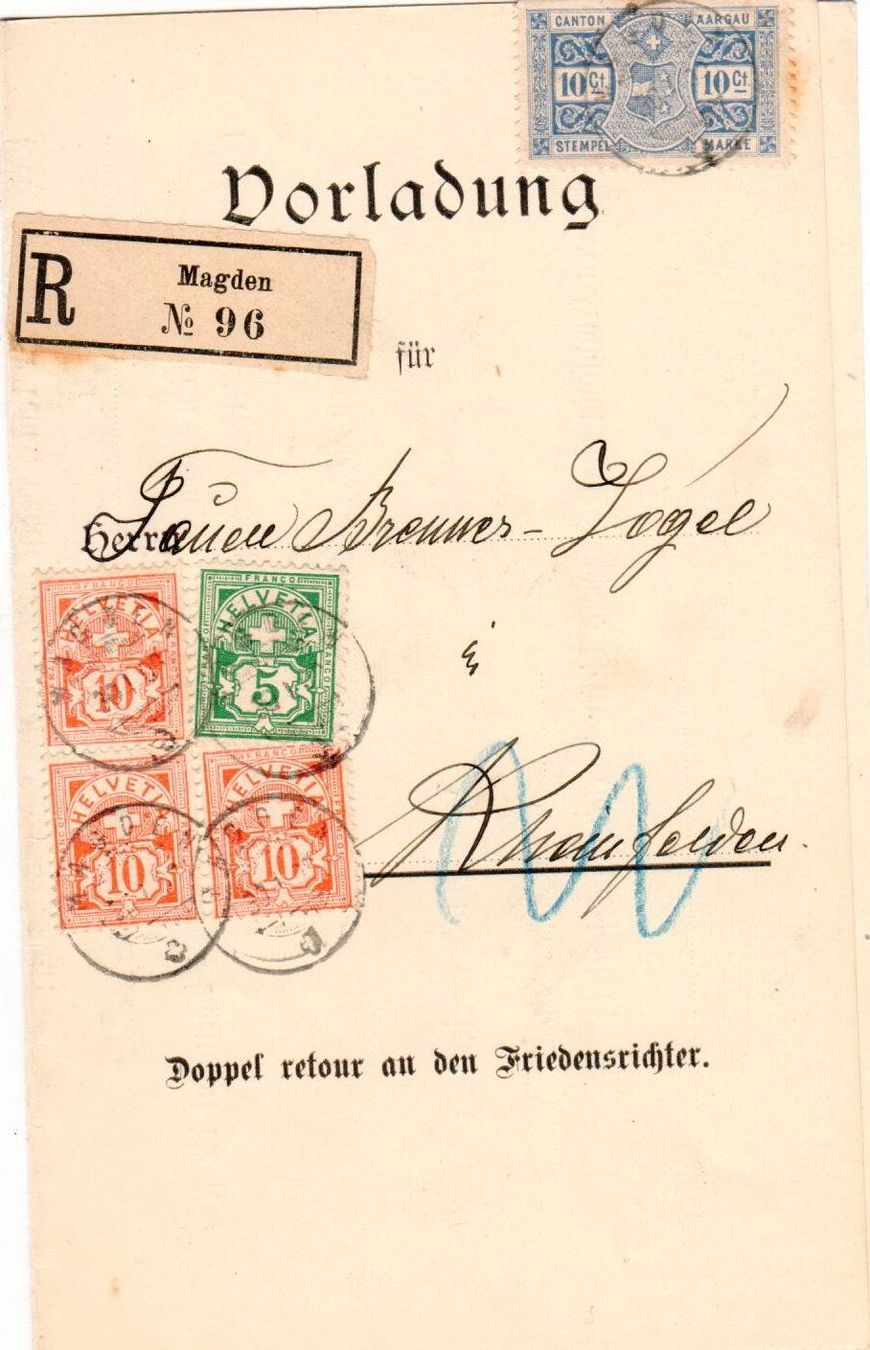 CANTON AARGAU
10 Ct. 10 Ct.
STEMPEL MARKE
Vorladung
R Magden
№ 96
für
Herrn
Brenner-Vogel
Rheinfelden.
FRANCO
HELVETIA
10
FRANCO
HELVETIA
5
HELVETIA
10
FRANCO
HELVETIA
10
MAGDEN
Doppel retour an den Friedensrichter.